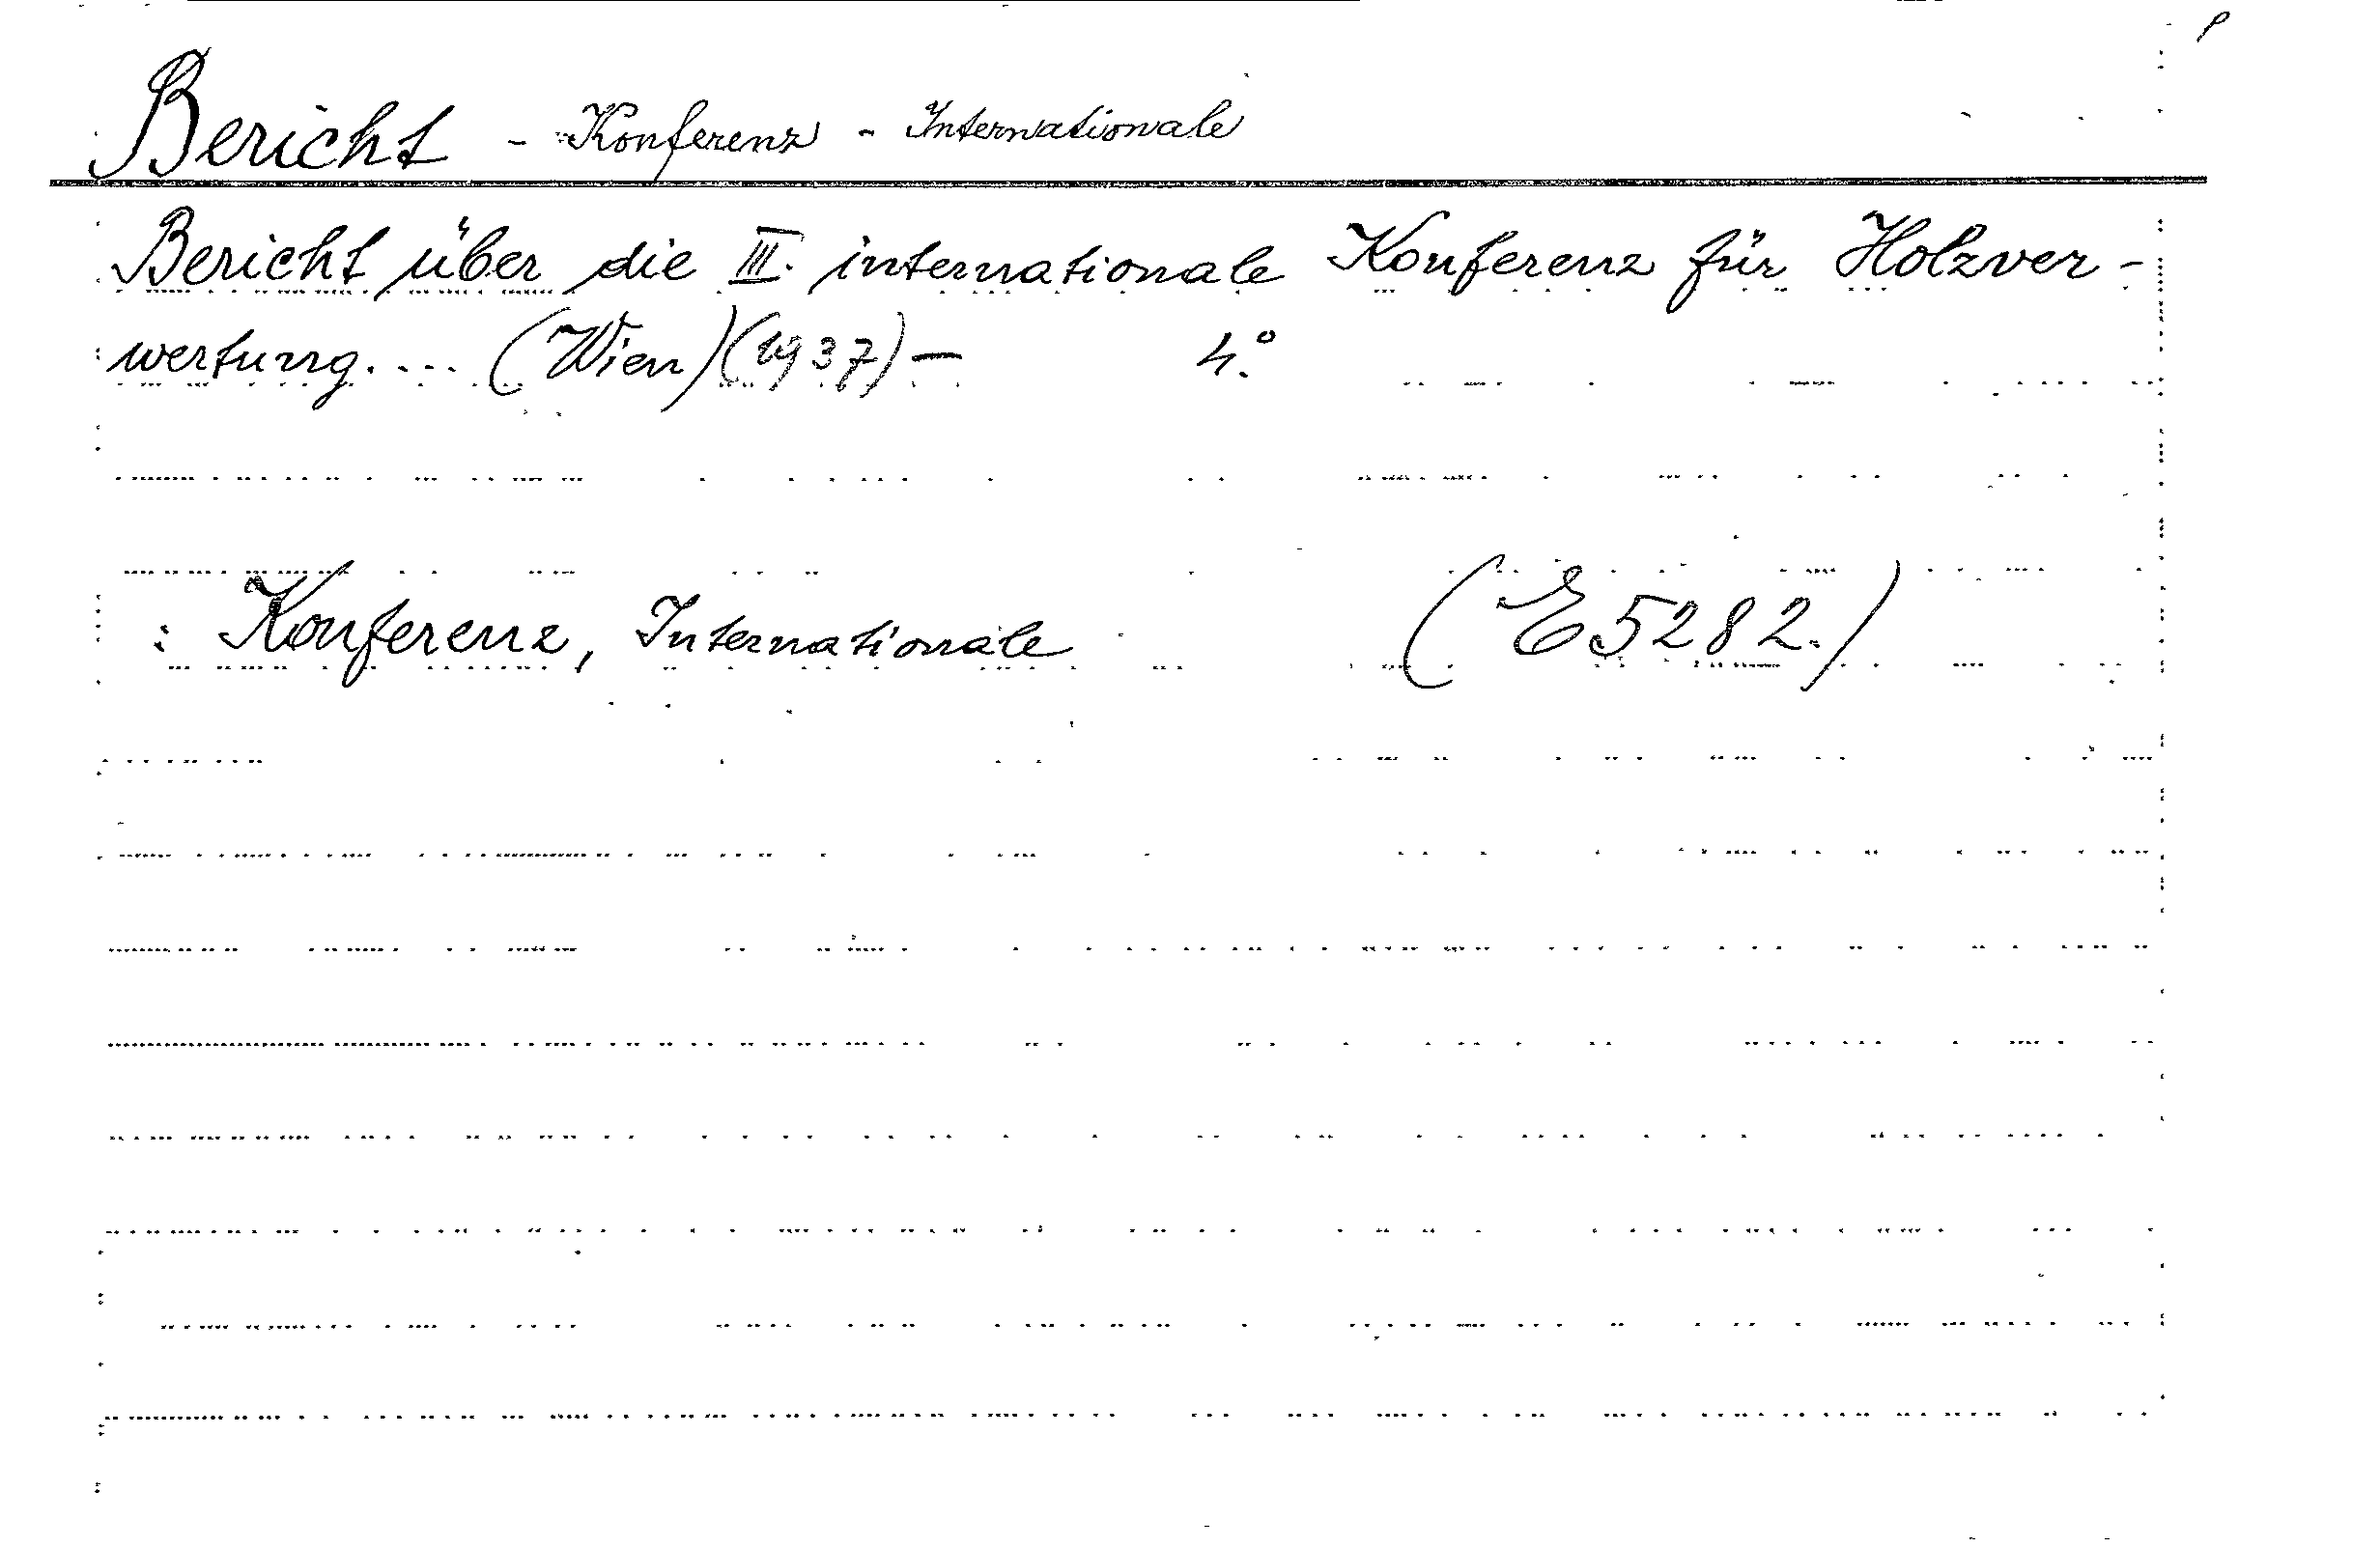 Bericht - Konferenz - Internationale
Bericht über die III. internationale Konferenz für Holzver-
wertung. ... (Wien) (1937) — 4.°
: Konferenz, Internationale (E 5282.)